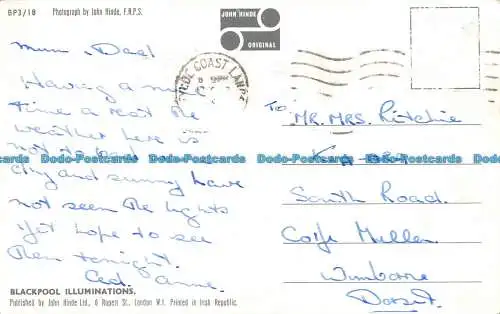 BP3/18 Photograph by John Hinde, F.R.P.S.
JOHN HINDE
ORIGINAL
FYLDE COAST LANCS
Mum & Dad
Having a nice
time & rest the
weather here is
not to bad
dry and sunny have
not seen the lights
yet hope to see
them tonight.
Ced. Anne.
BLACKPOOL ILLUMINATIONS.
Published by John Hinde Ltd., 6 Rupert St. London W.1. Printed in Irish Republic.
To,
MR. MRS. Ritchie
South Road.
Corfe Mullen
Wimborne
Dorset
Dodo-Postcards Dodo-Postcards Dodo-Postcards Dodo-Postcards